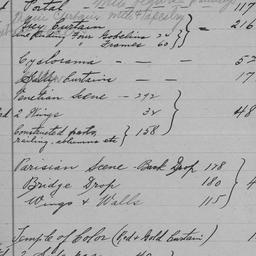 Portal - 117
Curtain with Tapestry
Grey Curtain
including Four Gobelins 24 } = 216
" Frames 60
Cyclorama - 52
Silk Curtains - 17
Venetian Scene - 292
2 Wings 34 } = 48
Constructed parts,
railing, columns etc } 158
Parisian Scene - Back Drop 178
Bridge Drop 180 } 4
Wings & Walls 115
Temple of Color (Red & Gold Curtain) 1